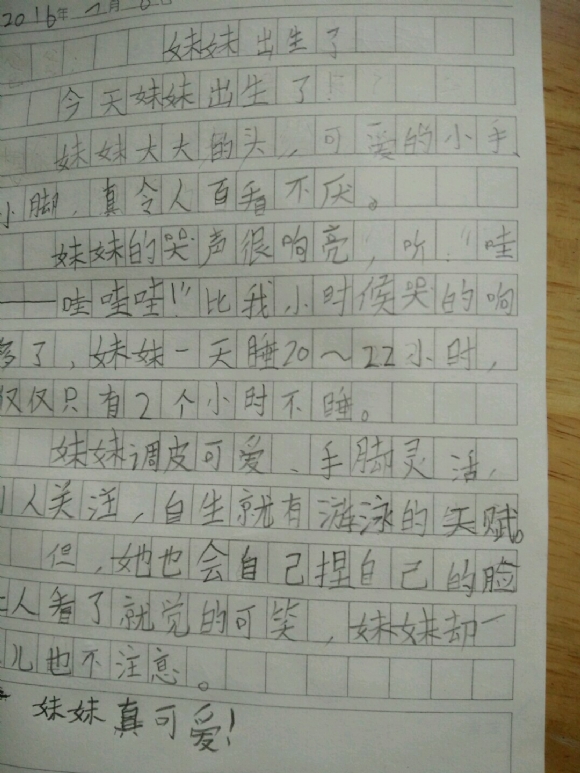 2016年 月
妹妹出生了
今天妹妹出生了!
妹妹大大的头,可爱的小手、
小脚,真令人百看不厌。
妹妹的哭声很响亮,听!"哇
——哇哇哇!"比我小时候哭的响
多了,妹妹一天睡20~22小时,
仅仅只有2个小时不睡。
妹妹调皮可爱、手脚灵活,
人关注,自生就有游泳的天赋。
但,她也会自己捏自己的脸
人看了就觉的可笑,妹妹却一
儿也不注意。
妹妹真可爱!